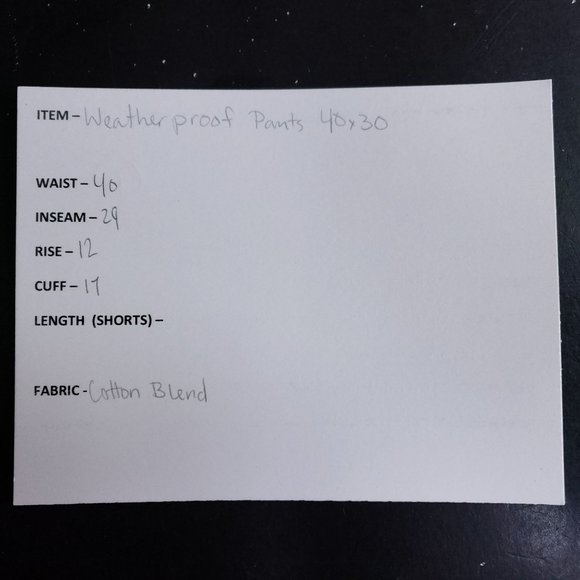 ITEM – Weatherproof Pants 40x30
WAIST – 40
INSEAM – 29
RISE – 12
CUFF – 17
LENGTH (SHORTS) –
FABRIC - Cotton Blend